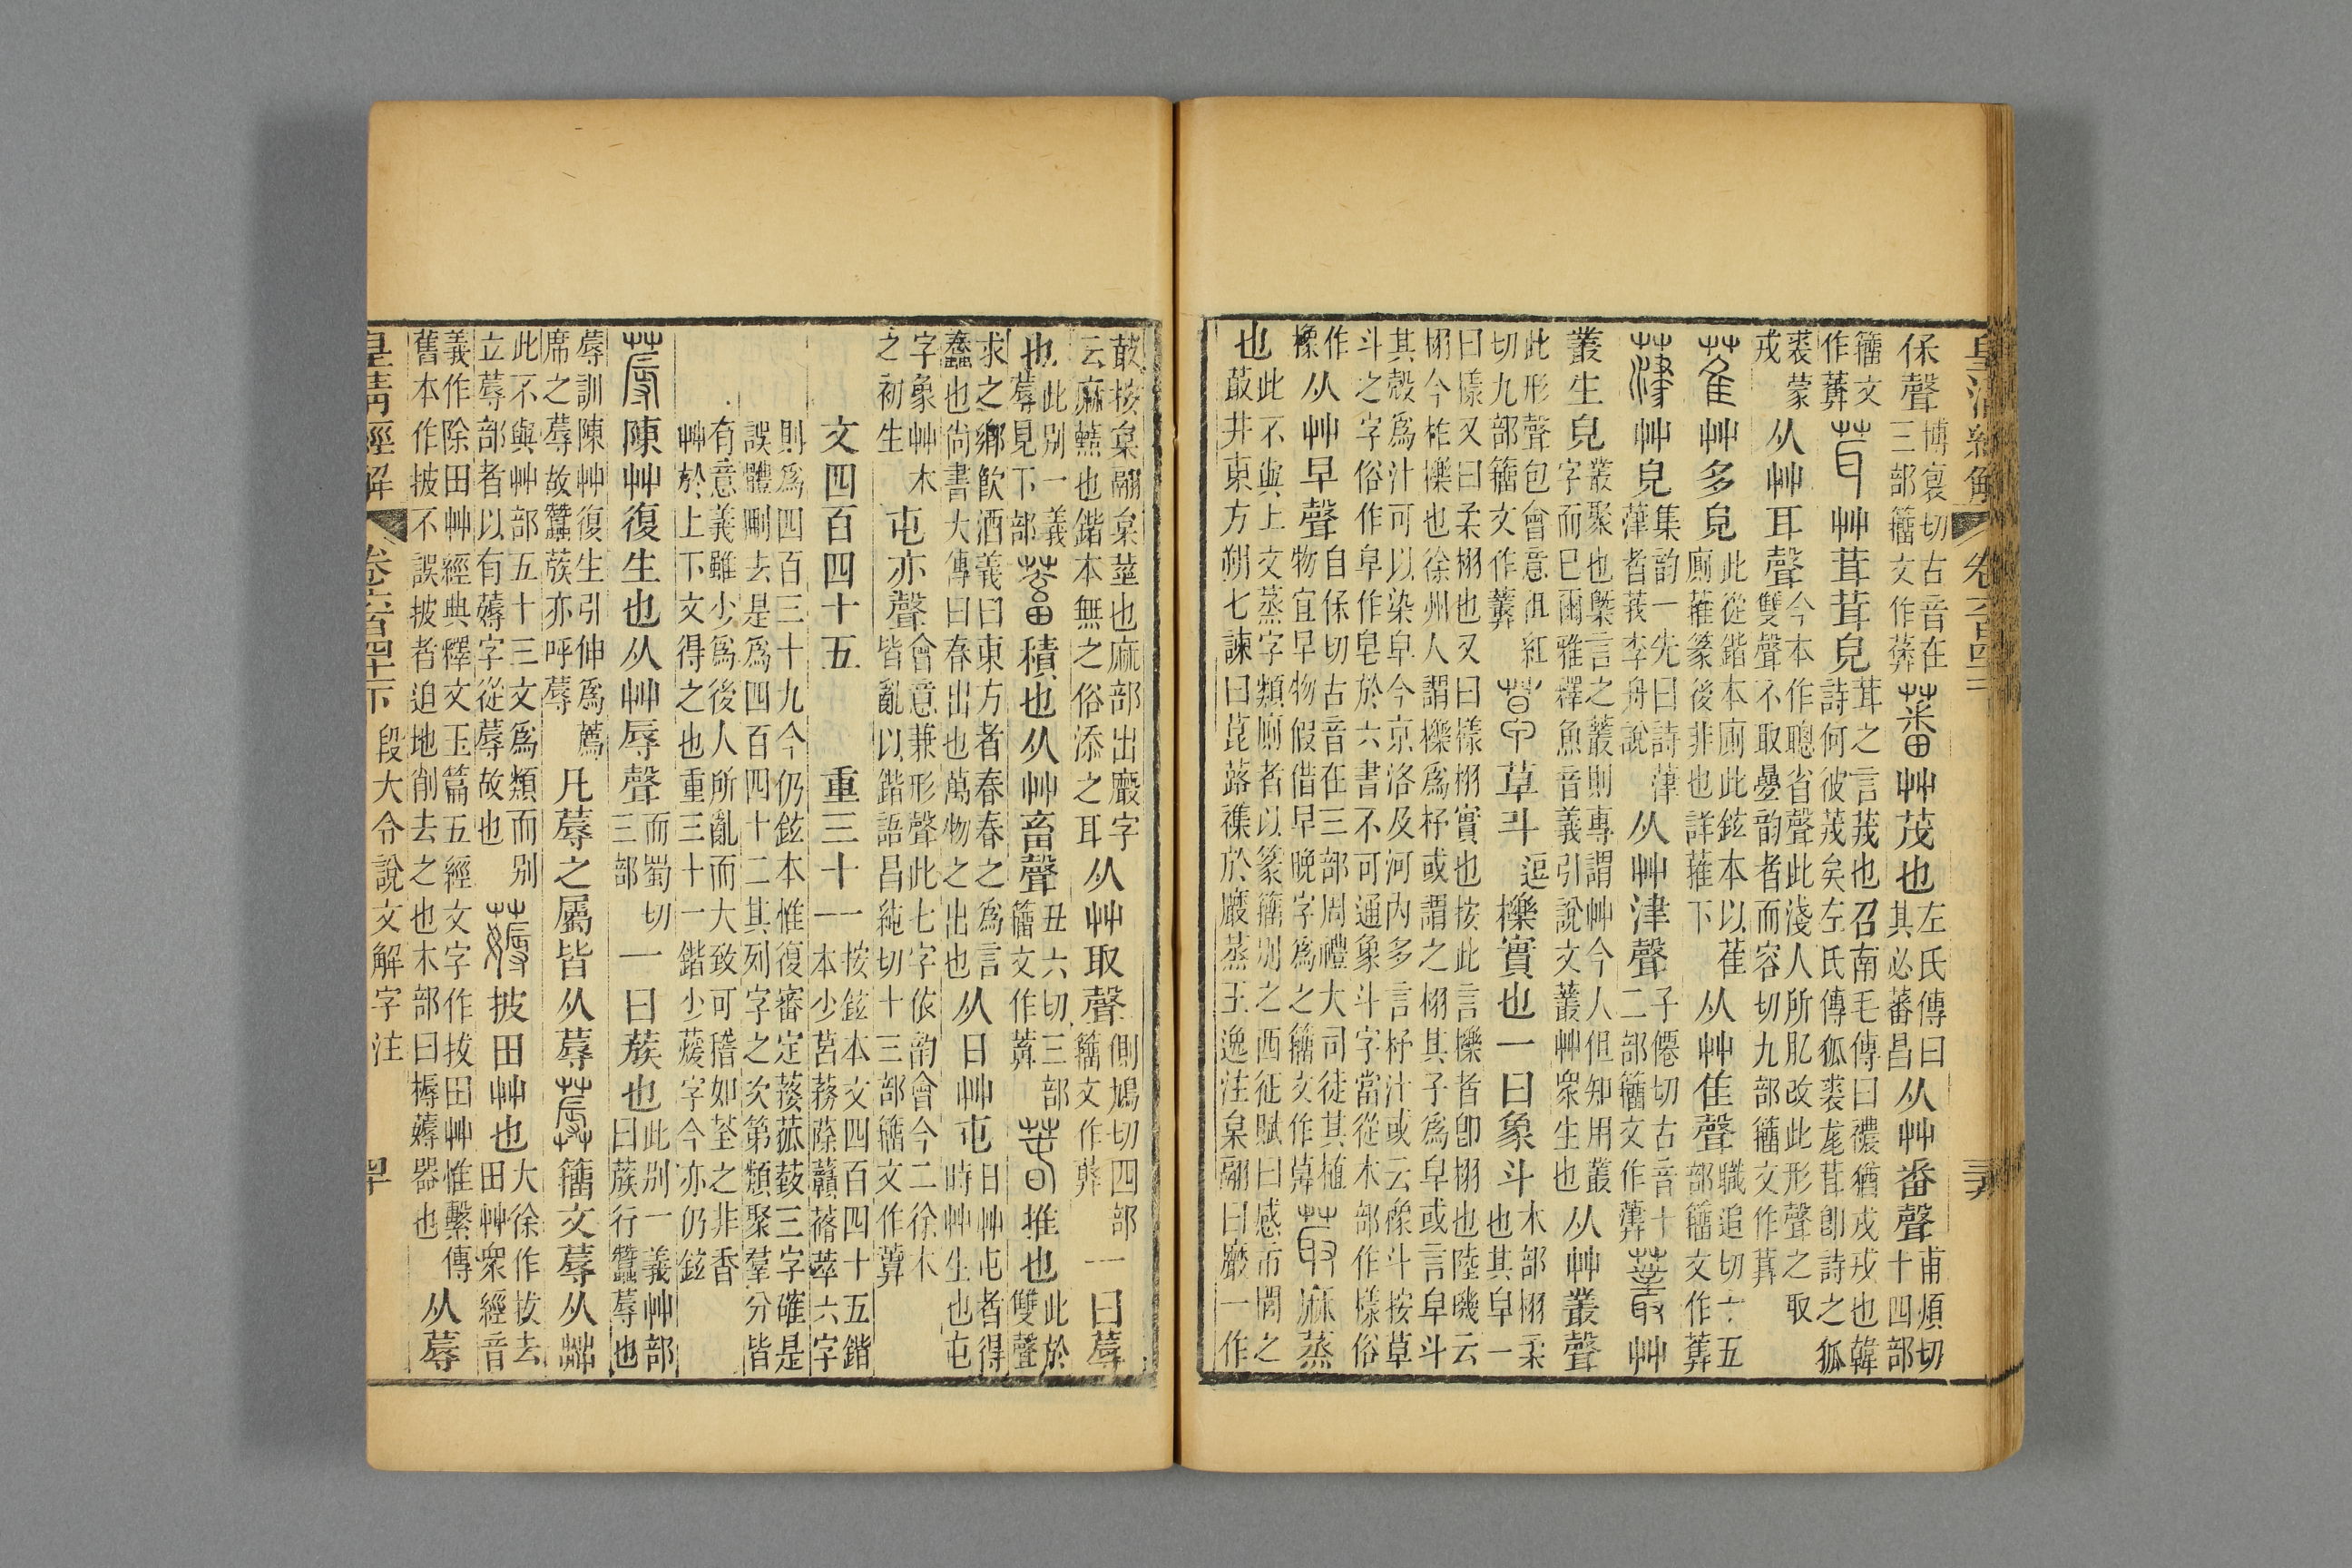 保聲博裒切古音在三部籒文作𦿶蕃艸茂也左氏傳曰其必蕃昌从艸番聲甫煩切十四部
籒文作茸艸茸茸皃茸之言茙也召南毛傳曰襛猶戎戎也韓詩何彼茙矣左氏傳狐裘尨茸卽詩之狐
裘蒙戎从艸耳聲今本作聰省聲此淺人所肊改此形聲之取雙聲不取㬪韵者而容切九部籒文作
萑艸多皃此從鍇本廁此鉉本以萑廁蓷篆後非也詳蓷下从艸隹聲職追切十五部籒文作
葏艸皃集韵一先曰詩葏葏者莪李舟說从艸津聲子僊切古音十二部籒文作叢艸
叢生皃叢聚也槩言之叢則專謂艸今人但知用叢字而已爾雅釋魚音義引說文叢艸衆生也从艸叢聲
此形聲包會意徂紅切九部籒文作草草斗逗櫟實也一曰象斗木部栩柔也其皁一
曰樣又曰柔栩也又曰樣栩實也按此言櫟者卽栩也陸璣云
栩今柞櫟也徐州人謂櫟爲杼或謂之栩其子爲皁或言皁斗
其殼爲汁可以染皁今京洛及河内多言杼汁或云橡斗按草
斗之字俗作皁作皂於六書不可通象斗字當從木部作樣俗
作橡从艸早聲自保切古音在三部周禮大司徒其植物宜早物假借早晚字爲之籒文作菆麻蒸
也此不與上文蒸字類廁者以篆籒別之西征賦曰感市閭之菆井東方朔七諫曰菎蕗襍於黀蒸王逸注枲翮曰黀一作
菆按枲翮枲莖也麻部出黀字云麻䕸也鍇本無之俗添之耳从艸取聲側鳩切四部籒文作一曰蓐
也此别一義蓐見下部蓄積也从艸畜聲丑六切三部籒文作萅推也此於雙聲
求之鄉飮酒義曰東方者春春之爲言蠢也尚書大傳曰春出也萬物之出也从日艸屯日艸屯者得時艸生也屯
字象艸木之初生屯亦聲會意兼形聲此七字依韵會今二徐木皆亂以鍇語昌純切十三部籒文作
文四百四十五 重三十一按鉉本文四百四十五鍇本少莒蓩蒢䕪蓨萃六字
則爲四百三十九今仍鉉本惟復審定菨菰菣三字確是
誤體刪去是爲四百四十二其列字之次第類聚羣分皆
有意義雖少爲後人所亂而大致可稽如荃之非香
艸於上下文得之也重三十一鍇少䕡字今亦仍鉉
蓐陳艸復生也从艸辱聲而蜀切三部一曰蔟也此别一義艸部曰蔟行蠶蓐也
蓐訓陳艸復生引伸爲薦席之蓐故蠶蔟亦呼蓐凡蓐之屬皆从蓐籒文蓐从茻
此不與艸部五十三文爲類而别立蓐部者以有薅字從蓐故也薅披田艸也大徐作拔去田艸衆經音
義作除田艸經典釋文玉篇五經文字作拔田艸惟繫傳舊本作披不誤披者迫地削去之也木部曰槈薅器也从蓐
皇清經解 卷六百四十一下 段大令說文解字注 罕